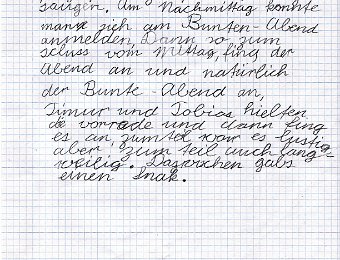 saugen. Am Nachmittag konnte
mann sich am Bunten-Abend
anmelden. Dann so zum
schluss vom Mittag, fing der
Abend an und natürlich
der Bunte-Abend an,
Timur und Tobias hielten
de vorrede und dann fing
es an, zum teil war es lustig
aber zum teil auch lang=
weilig. Dazwischen gabs
einen Snak.